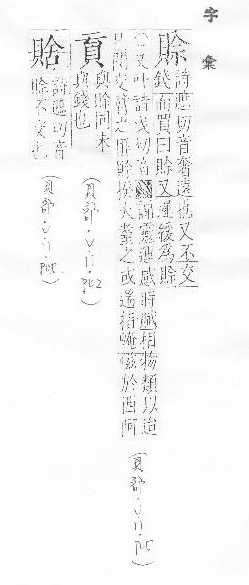 字彙
賒
詩遮切音奢遠也又不交
錢而買曰賒又遲緩為賒
又叶詩戈切音 謝靈運感時賦相物類以迨
已閔交臂之匪賒揆大耋之或遄指崦嵫於西阿
(貝部.
𧵳
與賒同未
與錢也
(貝部.
賖
詩遮切音
賒不交也
(貝部.